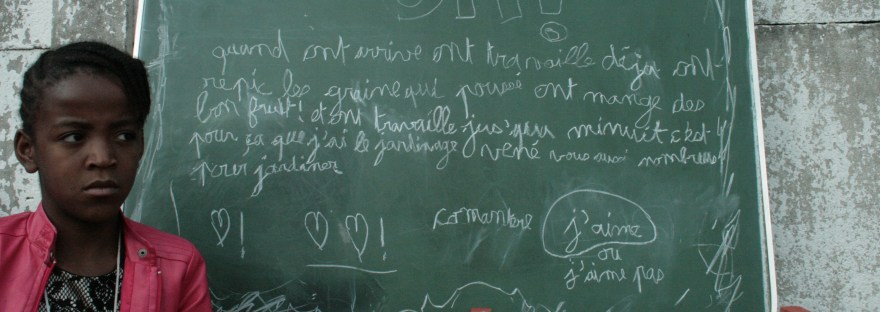 quand ont arrive ont travaille déja ont
repix les graine qui poussé ont mange des
bon fruit! et ont travaille jus'qua minuit s'est
pour ça que j'ai le jardinage vené vous aussi nombreuses
pour jardiner
! !
komantere j'aime
ou
j'aime pas